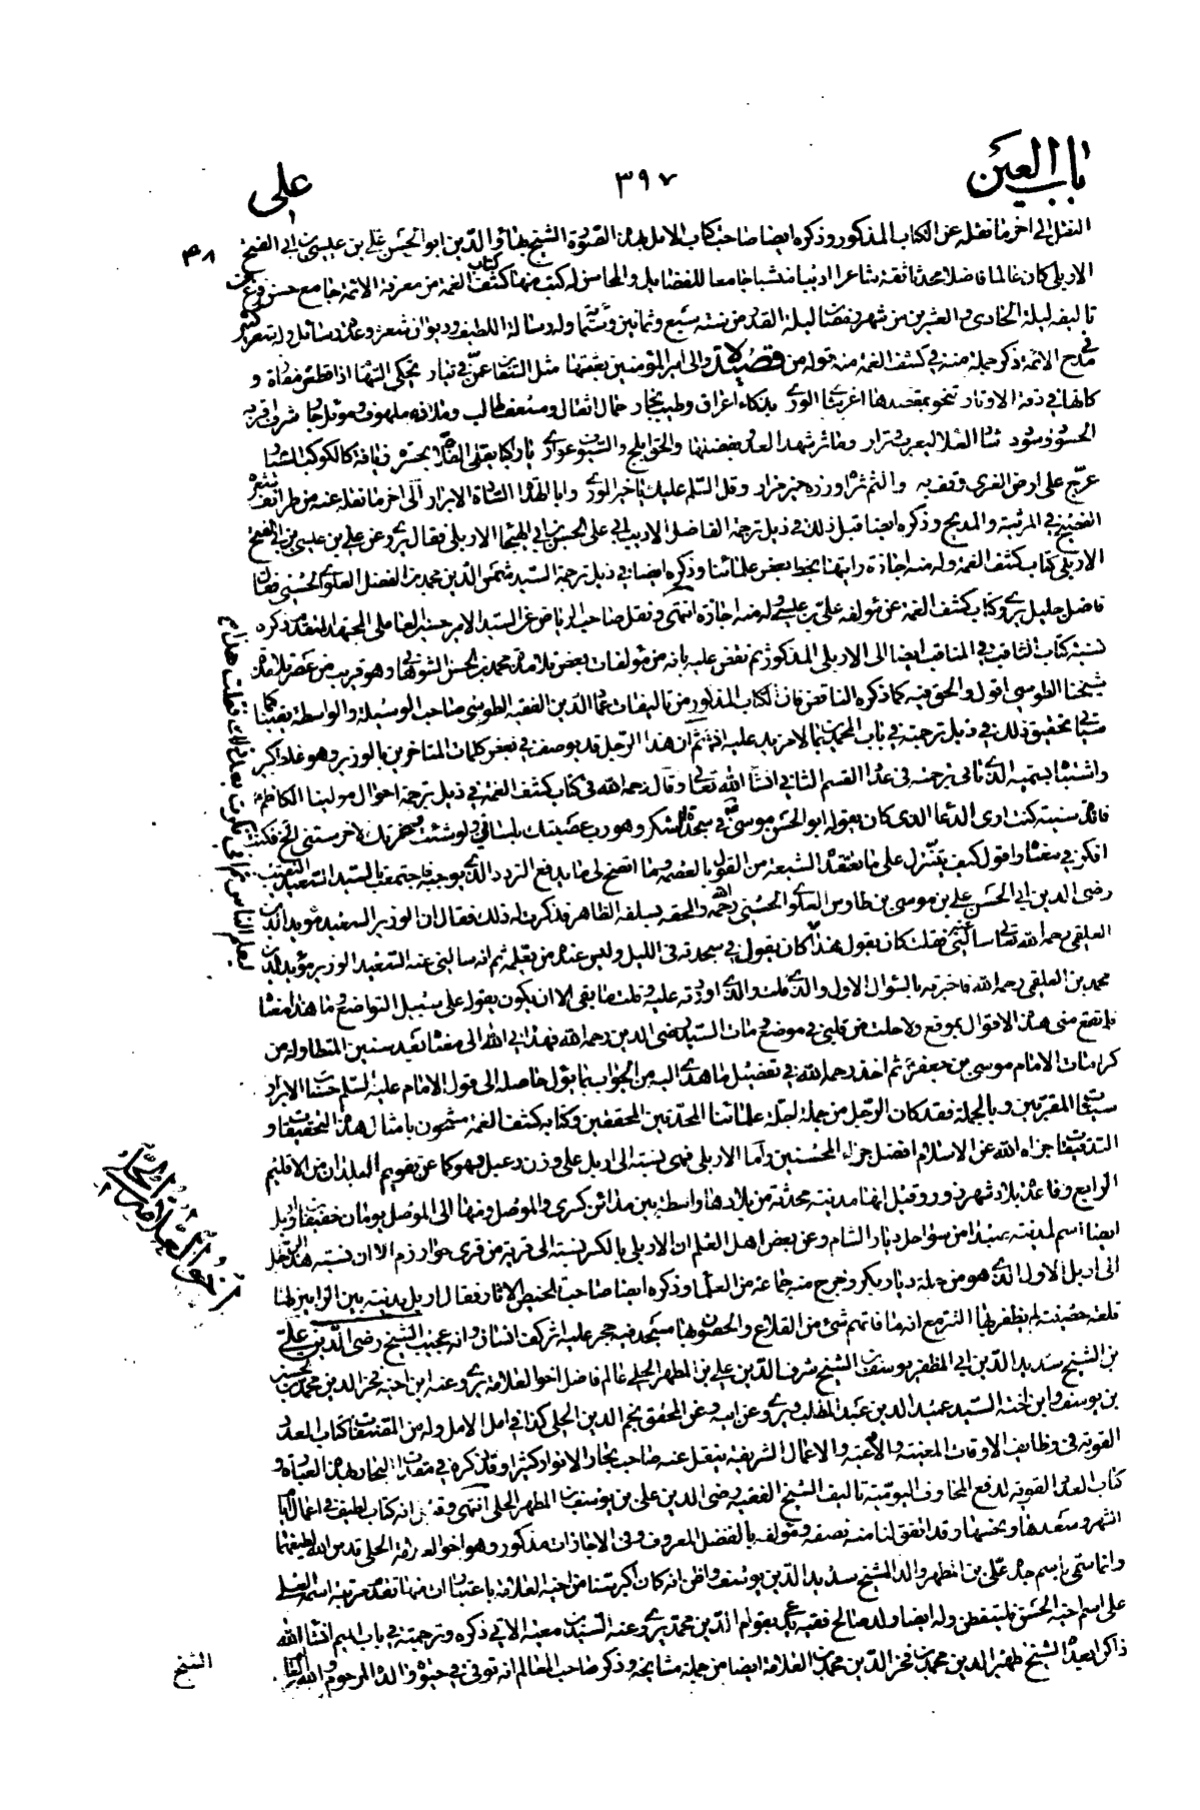 باب العين
٣٩٧
علي
النقل إلى آخر ما نقله عن الكتاب المذكور وذكره ايضا صاحب كتاب الامل بهذه الصورة الشيخ بهاء الدين ابو الحسن علي بن عيسى بن ابي الفتح
الاربلي كان عالما فاضلا محدثا ثقة شاعرا اديبا منشيا جامعا للفضايل والمحاسن له كتب منها كتاب كشف الغمة من معرفة الائمة جامع حسن فرغ من
تاليفه ليلة الحادي والعشرين من شهر رمضان ليلة القدر من سنة سبع وثمانين وستمائة وله رسالة الطيف وديوان شعر وعدة رسائل وله شعر كثير
في مدح الائمة ذكر جملة منه في كشف الغمة منه قوله من قصيدة والى امير المؤمنين بعثتها مثل السفاين عمن في تيار تحكي السهام اذا قطعن مفازة و
كانها في دقة الاوتار تنحو بمقصدها اغر شاى الورى بذكاء اغراق وطيب نجار حمال اثقال ومسعف طالب وملاذ ملهوف وموئل جار شرف اقر به
الحسود وسودد شاد العلا ليعرب ونزار ومآثر شهد العدو بفضلها والحق ابلج والسيوف عوارى يا راكبا يفلي الفلاة بجسرة زيافة كالكوكب السيار
عرج على ارض الغرى وقف به والثم ثراه وزره خير مزار وقل السلام عليك يا خير الورى وابا الهداة السادة الابرار الى آخر ما نقله عنه من طرائف شعره
الفخيم في المرثية والمديح وذكره ايضا قبل ذلك في ذيل ترجمة الفاضل الاديب ابي علي الحسن بن ابي الهيجاء الاربلي فقال يروى عن علي بن عيسى بن ابي الفتح
الاربلي كتاب كشف الغمة وله منه اجازة رايتها بخط بعض علمائنا وذكره ايضا في ذيل ترجمة السيد شمس الدين محمد بن الفضل العلوي الحسني فقال
فاضل جليل يروى كتاب كشف الغمة عن مؤلفه علي بن عيسى وله منه اجازة انتهى ونقل صاحب الرياض عن السيد الامير حسين العاملي المجتهد المتقدم ذكره
نسبة كتاب الثاقب في المناقب ايضا الى الاربلي المذكور ثم نقض عليه بانه من مؤلفات بعض تلامذة محمد بن الحسن الشوهاني وهو قريب من عصر تلامذة
شيخنا الطوسي اقول والحق فيه كما ذكره الناقض فان الكتاب المذكور من تاليفات عماد الدين الفقيه الطوسي صاحب الوسيلة والواسطة يقينا كما
سياتي تحقيق ذلك في ذيل ترجمته في باب المحمدين بما لا مزيد عليه انشاء ثم ان هذا الرجل قد يوصف في بعض كلمات المتاخرين بالوزير وهو غلط اكبر
واشتباه بسميه الذي تاتى ترجمته في عداد القسم الثاني انشاء الله تعالى وقال رحمه الله في كتاب كشف الغمة في ذيل ترجمة احوال مولينا الكاظم ع
فائدة سنية كنت ارى الدعاء الذي كان يقوله ابو الحسن موسى ع في سجدة الشكر وهو رب عصيتك بلساني ولو شئت وعزتك لاخرستني الخ فكنت
افكر في معناه واقول كيف يتنزل على ما تعتقده الشيعة من القول بالعصمة وما اتضح لي ما يدفع التردد الذي يوجبه فاجتمعت بالسيد السعيد النقيب
رضى الدين ابي الحسن علي بن موسى بن طاوس العلوي الحسني رحمه الله والحقه بسلفه الطاهر فذكرت له ذلك فقال ان الوزير السعيد مؤيد الدين
العلقمي رحمه الله تعالى سالني عنه فقلت كان يقول هذا كان يقول في سجدته في الليل وليس عنده من يعلمه ثم انه سالني عنه السعيد الوزير مؤيد الدين
محمد بن العلقمي رحمه الله فاخبرته بالسؤال الاول والذي قلت والذي اوردته عليه وقلت ما بقى الا ان يكون يقوله على سبيل التواضع وما هذا معناه
فلم تقع مني هذه الاقوال بموقع ولا حلت من قلبي في موضع ومات السيد رضى الدين رحمه الله فهداني الله الى معناه بعد سنين المتطاولة من
كرامات الامام موسى بن جعفر ثم اخذ رحمه الله في تفصيل ما هدى اليه من الجواب بما يؤل حاصله الى قول الامام عليه السلم حسنات الابرار
سيئات المقربين وبالجملة فقد كان الرجل من جملة اجلة علمائنا المحدثين المحققين وكتابه كشف الغمة مشحون بامثال هذه التحقيقات و
التدقيقات جزاه الله عن الاسلام افضل جزاء المحسنين واما الاربلي فهى نسبته الى اربل على وزن دعبل وهو كما عن تقويم البلدان من الاقليم
الرابع وقاعدة بلاد شهرزور وقيل انها مدينة محدثة من بلادها واسطة بين مدائن كسرى والموصل ومنها الى الموصل يومان خفيفان واربل
ايضا اسم لمدينة صيدا من سواحل ديار الشام وعن بعض اهل العلم ان الاربلي بالكسر نسبة الى قرية من قرى خوارزم الا ان نسبة هذا الرجل
الى اربل الاول الذي هو من جملة ديار بكر وخرج منه جماعة من العلماء وذكره ايضا صاحب تلخيص الاثار فقال اربل مدينة بين الزابين لها
قلعة حصينة لم يظفر بها التتر مع انه ما فاتهم شئ من القلاع والحصون وبها مسجد فيه حجر عليه اثر كف انسان وانه عجيب الشيخ رضى الدين علي
بن الشيخ سديد الدين ابي المظفر يوسف بن الشيخ شرف الدين علي بن المطهر الحلي عالم فاضل اخو العلامة يروى عنه ابن اخيه فخر الدين محمد بن حسن
بن يوسف وابن اخته السيد عميد الدين عبد المطلب ويروى عن ابيه وعن المحقق نجم الدين الحلي كذا في امل الامل وله من المصنفات كتاب العدد
القوية في وظايف الاوقات المعينة والادعية والاعمال الشريفة ينقل عنه صاحب بحار الانوار كثيرا وقد ذكره في مقدمات البحار بهذه العبارة و
كتاب العدد القوية لدفع المخاوف اليومية تاليف الشيخ الفقيه رضى الدين علي بن يوسف بن المطهر الحلي انتهى وقيل انه كتاب لطيف في اعمال ايام
الشهر وسعدها ونحسها وقد اتفق لنا منه نصفه ومؤلفه بالفضل المعروف وفى الاجازات مذكور وهو اخو العلامة الحلي قدس الله لطيفهما
وانما سمى باسم جده علي بن المطهر والد الشيخ سديد الدين يوسف واظن انه كان اكبر سنا من اخيه العلامة باعتبار ان فيها تقدم مرتبة اسم العلي
على اسم اخيه الحسن فليتفطن وله ايضا ولد صالح فقيه يدعى بقوام الدين محمد يروى عنه السيد بن معية الاتي ذكره وترجمته في باب الميم انشاء الله
ذاكرا بعده الشيخ ظهير الدين محمد بن فخر الدين محمد بن العلامة ايضا من جملة مشايخه وذكر صاحب المعالم انه توفى في حيوة والده المرحوم والله العالم
اخو العلامة الحلي
الشيخ